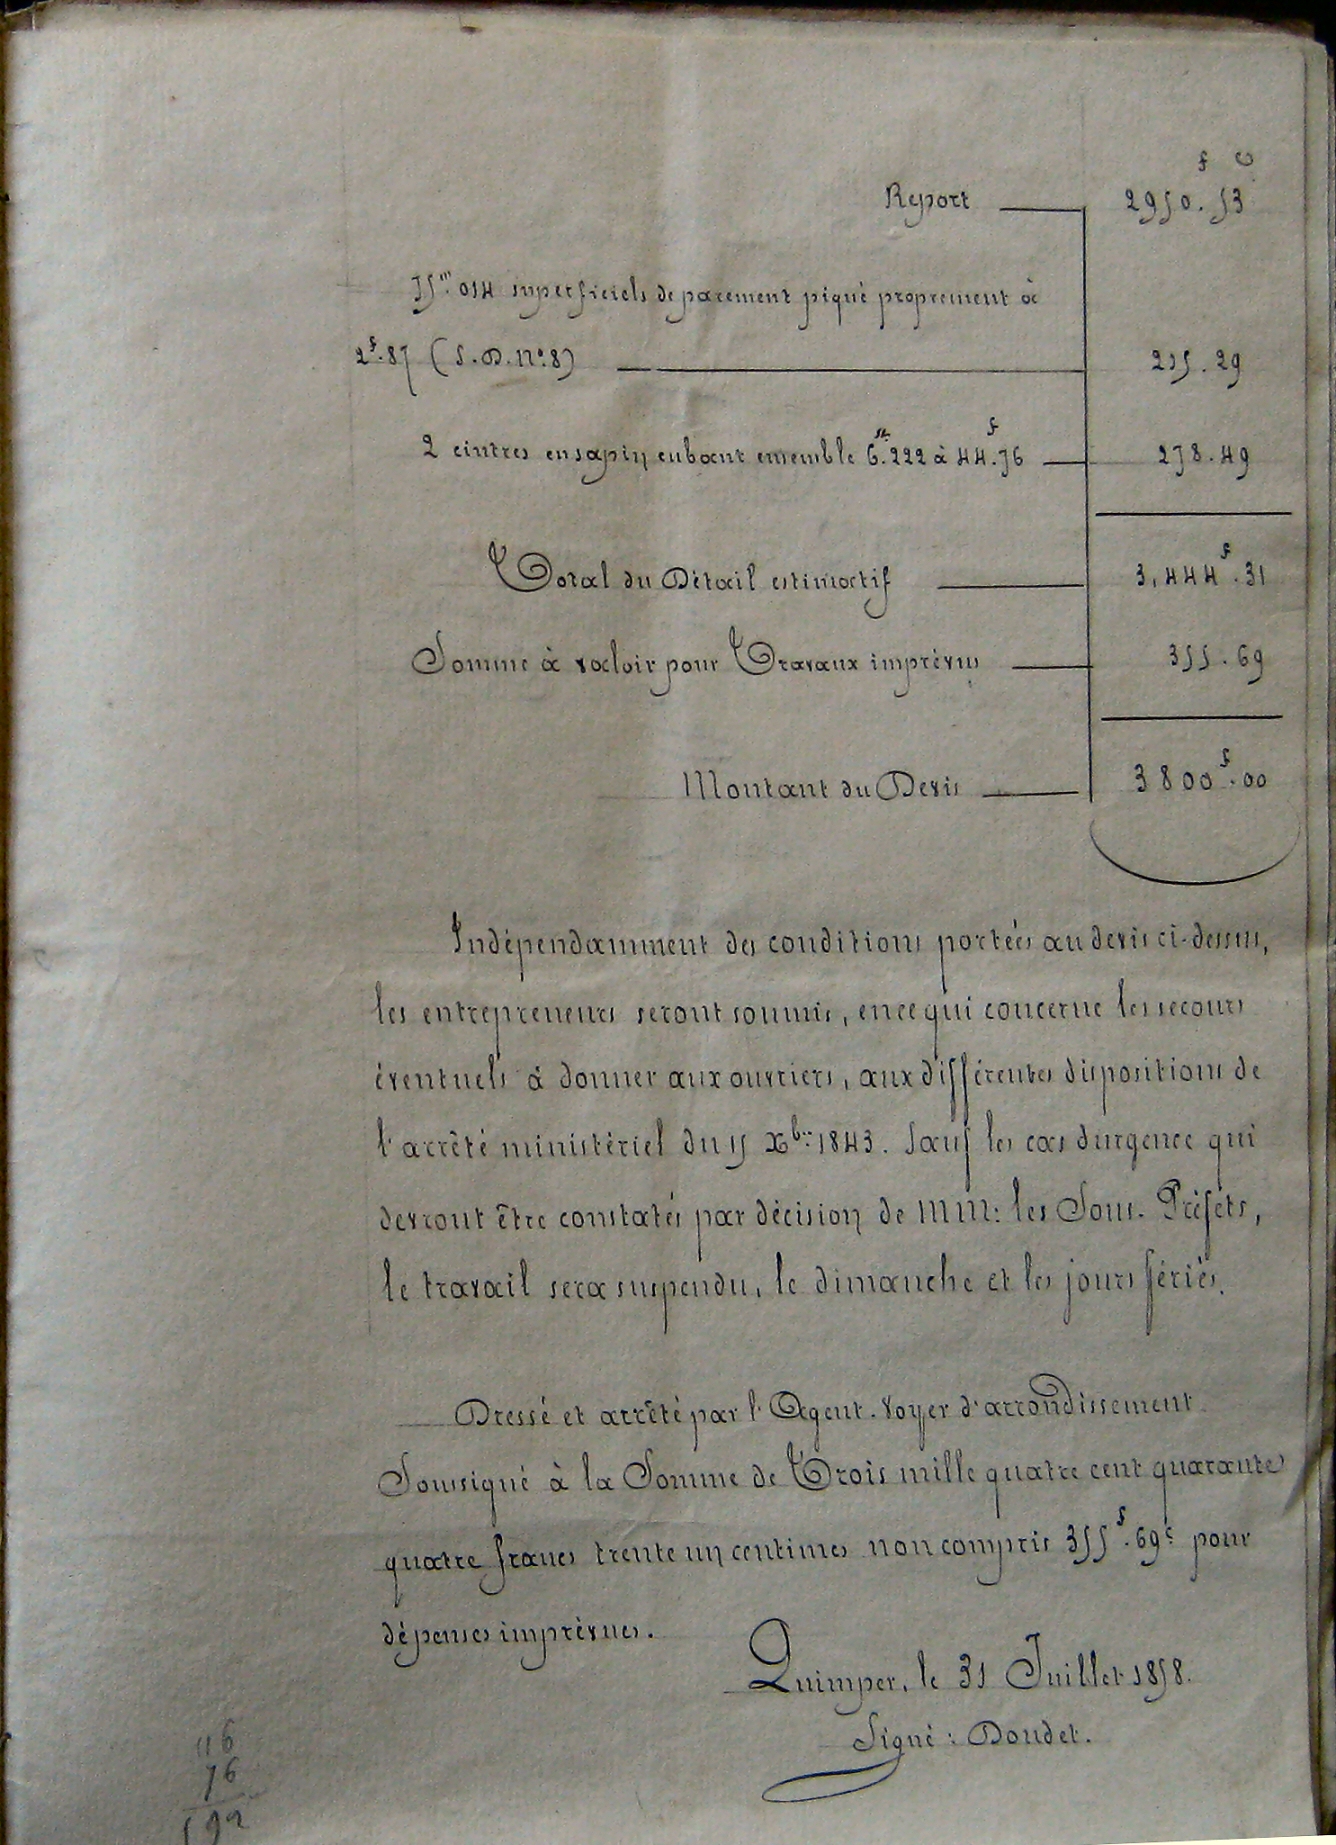 f c
Report 2950.53
75m.014 superficiels de parement piqué proprement à
2f.87 (S.D.N°.8) 215.29
2 cintres en sapin cubant ensemble 6st.222 à 44f.76 278.49
Total du Détail estimatif 3,444f.31
Somme à valoir pour Travaux imprévus 355.69
Montant du Devis 3800f.00
Indépendamment des conditions portées au devis ci-dessus,
les entrepreneurs seront soumis, en ce qui concerne les secours
éventuels à donner aux ouvriers, aux différentes dispositions de
l'arrêté ministériel du 15 Xbre 1843. Sauf les cas d'urgence qui
devront être constatés par décision de MM: les Sous-Préfets,
le travail sera suspendu, le dimanche et les jours fériés.
Dressé et arrêté par l'Agent-Voyer d'arrondissement
Soussigné à la Somme de Trois mille quatre cent quarante
quatre francs trente un centimes non compris 355f.69c pour
dépenses imprévues.
Quimper, le 31 Juillet 1858.
Signé: Doudet.
116
76
192